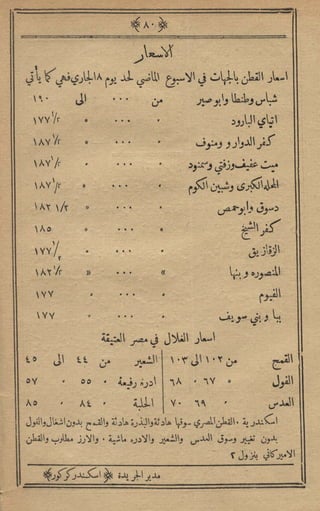 ﴿ ٨٠ ﴾
الاسعار
اسعار القطن بالجهات في الاسبوع الماضي لحد يوم ١٨ الجاري فهي كما يأتي
شباس وطنطا وابو صير من ٠٠٠ الى ١٩٠
اتياي البارود » ٠٠٠ » ١٧٧١/٢
كفر الدوار و ومنوف » ٠٠٠ » ١٨٧١/٢
ميت عفيف وزفتي وسمنود » ٠٠٠ » ١٨٧١/٢
المحله الكبرى وشبين الكوم » ٠٠٠ » ١٨٧١/٢
دسوق وابو حمص » ٠٠٠ » ١٨٢ ١/٢
كفر الشيخ » ٠٠٠ » ١٨٥
الزقازيق » ٠٠٠ » ١٧٧١/٢
المنصوره و بنها » ٠٠٠ » ١٨٢١/٢
الفيوم » ٠٠٠ » ١٧٧
ببا و بني سويف » ٠٠٠ » ١٧٧
اسعار الغلال في مصر العتيقة
القمح من ١٠٢ الى ١٠٣ الشعير من ٤٤ الى ٤٥
الفول » ٦٧ » ٦٨ ادرة رفيعة » ٥٥ » ٥٧
العدس » ٦٩ » ٧٠ الحلبة » ٨٤ » ٨٥
اسكندرية ٠ القطن المصري سوقها هادئة والبذرة هادئة والقمح بدون اشغال والفول
بدون تغيير وسوق العدس والشعير والادره ماشية ٠ والارز مطلوب والقطن
الاميركاني بنزول ٢
مدير الجريدة ﴿ اسكندر كركور ﴾